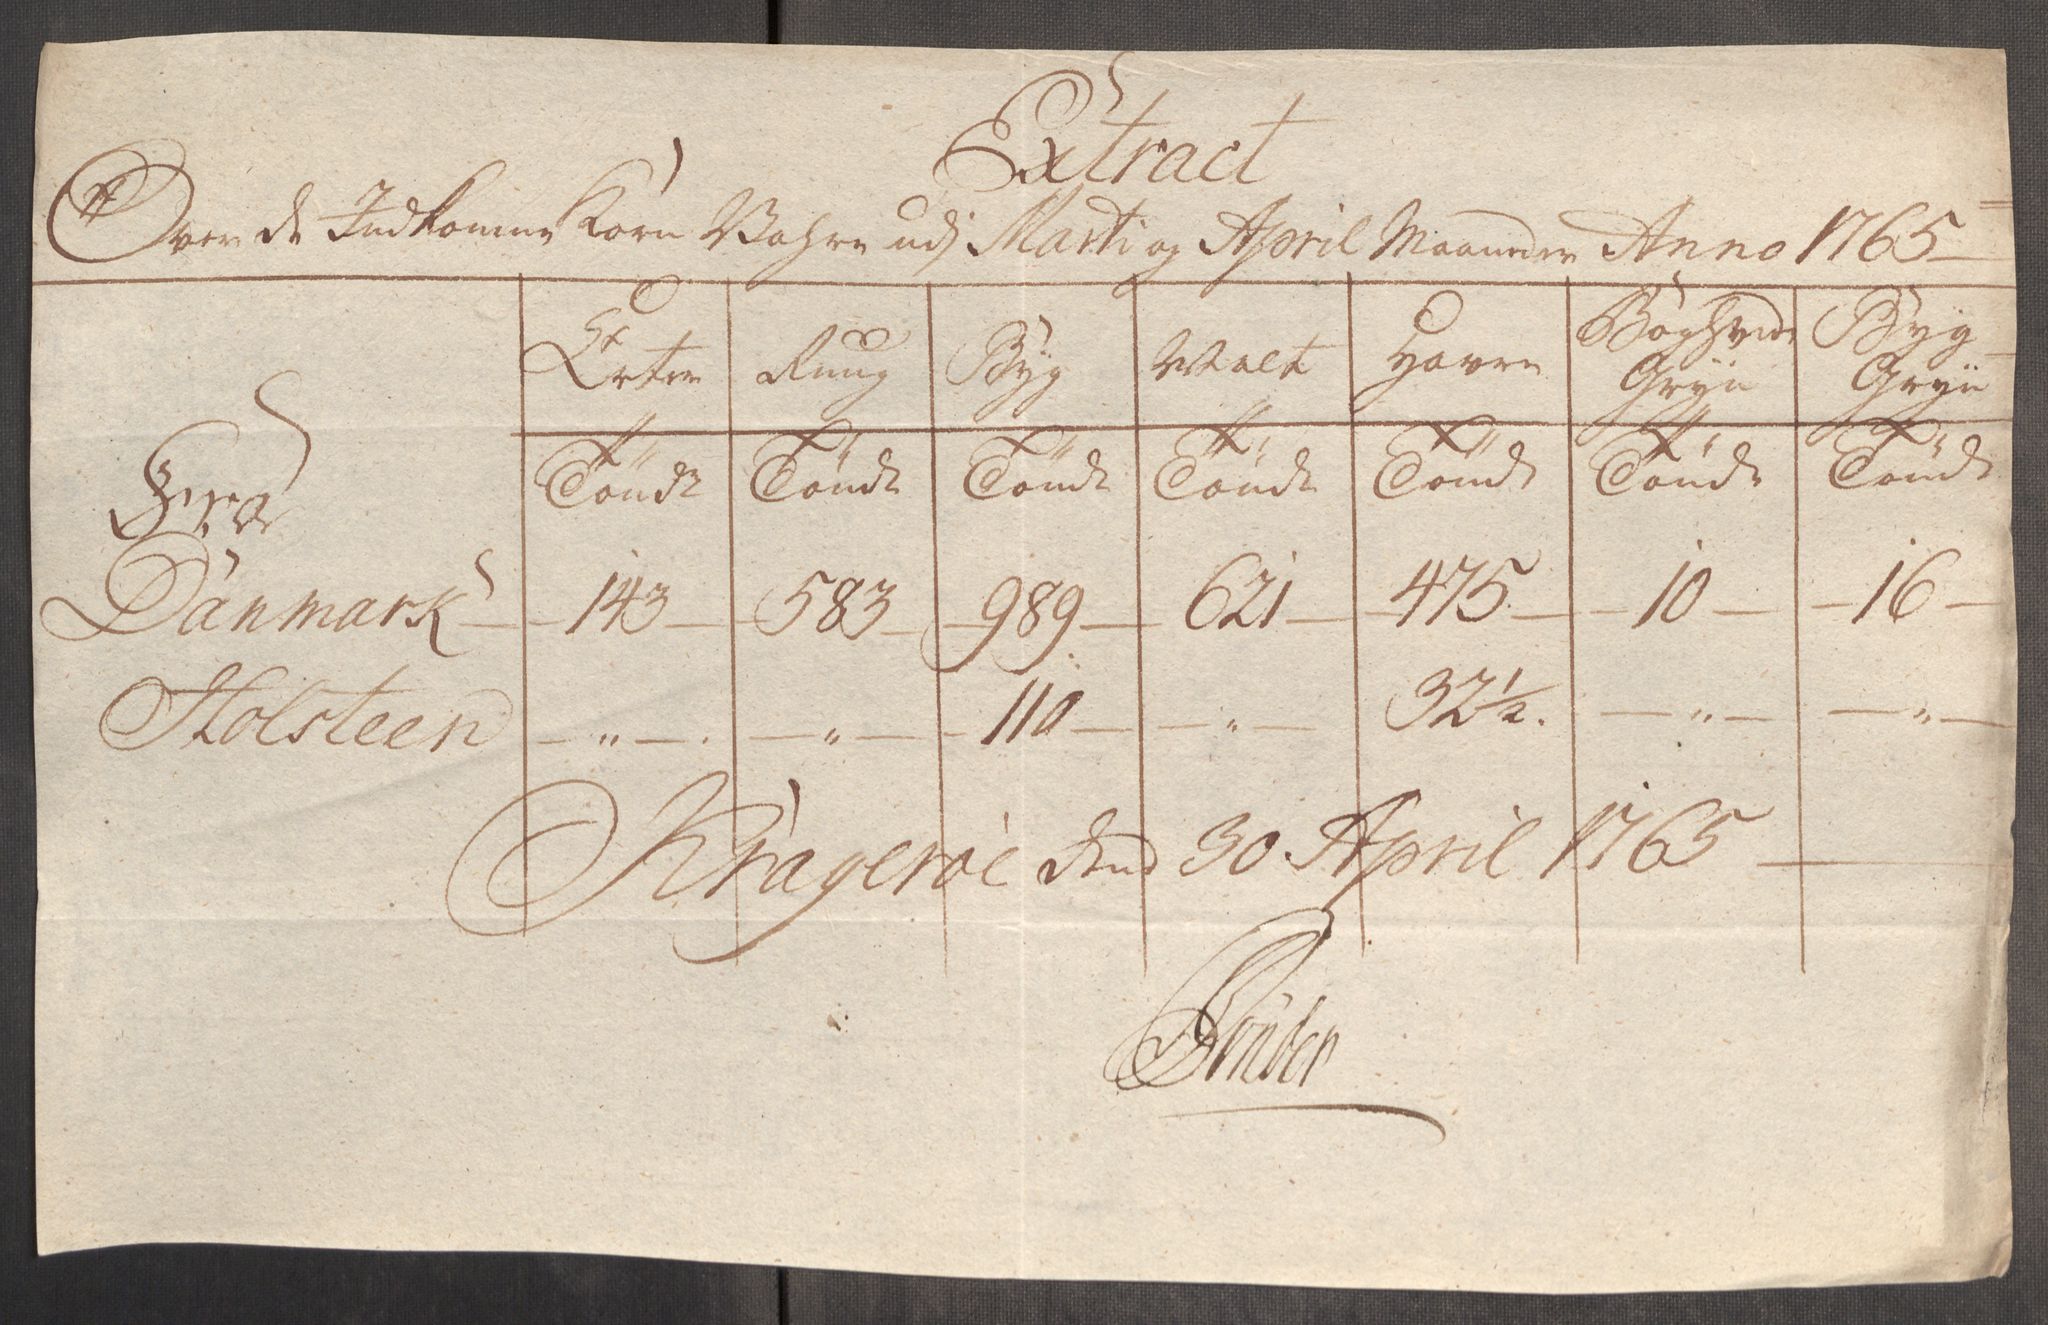 Extract
Over de Indkomne Korn Wahre udj Marti og April Maaneder Anno 1765
Erter Ruug Byg Malt Havre Boghvede Byg
Gryn Gryn
Tönde Tönde Tönde Tönde Tönde Tönde Tönde
Fra
Danmark 143 583 989 621 475 10 16
Holsteen — " — — " — 110 — " — 32 1/2. — " — — " —
Kragerøe dend 30 April 1765